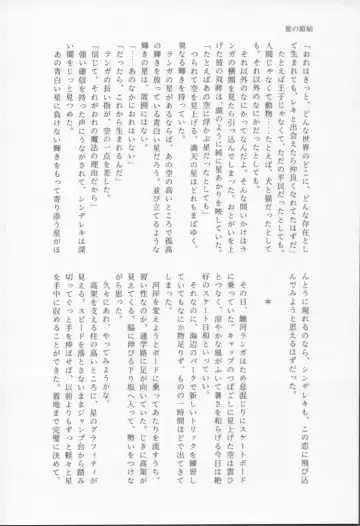 星の原始
「おれはきっと、どんな世界のどこに、どんな存在とし
て生まれても、レキと出会えたら仲良くなれてたはずだ」
「たとえば王子じゃなくて、ただの平民だったとしても、
人間じゃなくて動物……たとえば、犬と猫だったとして
も。それ以外のなにかだったとしても」
それ以外のなにかってなんだよ。そんな問いかけはラ
ンガの横顔を見たら引っ込んでしまった。おとがいを上
げた彼の双眸は、湖のように縁に星あかりを映していた。
「たとえばあの空に浮かぶ星だったとしても」
つられて空を見上げる。満天の星はどれもまばゆく、
異なる輝きを持っていた。
ランガの星があるならば、あの空の高いところで孤高
に輝いている青白い星だろう。並び立てるような
輝きの星は、周囲にはない。
「……あのなかにおれはいない」
「だったら、これから生まれるんだ」
ランガの長い指が、空の一点を差した。
「信じて。それがおれの魔法の理由だから」
強い確信を持った声にうながされ、シンデレキは深
い闇をじっと見つめた。
あの青白い星に負けない輝きをもって寄り添う星がほ
んとうに現れるのなら、シンデレキも、この恋に飛び込
んでみようと思えるはずだった。
＊
その日、馳河ランガはため息混じりにスケートボード
に乗っていた。キャップのつばごしに見上げた空は雲ひ
とつなく、涼やかな風がふいて暑さを和らげる今日は絶
好のスケート日和といっていい。
それなのに、海辺のパークで新しいトリックを練習し
ていてもなにか物足りず、ものの一時間ほどで出てきて
しまった。
河岸を変えようとボードに乗ってあたりを流すうち、
習い性なのか、通学路に足が向いていた。じきに高架が
見えてくる。脇に伸びる下り坂へ入って、勢いをつけな
がら思った。
久々にあれ、やってみようかな。
高架を支える柱の高いところに、星のグラフィティが
見える。スピードを落とさないままジャンプ台から踏み
切ってぐっと手を伸ばせば、以前よりもずっと軽々と星
を手中に収めることができた。着地まで完璧に決めて、